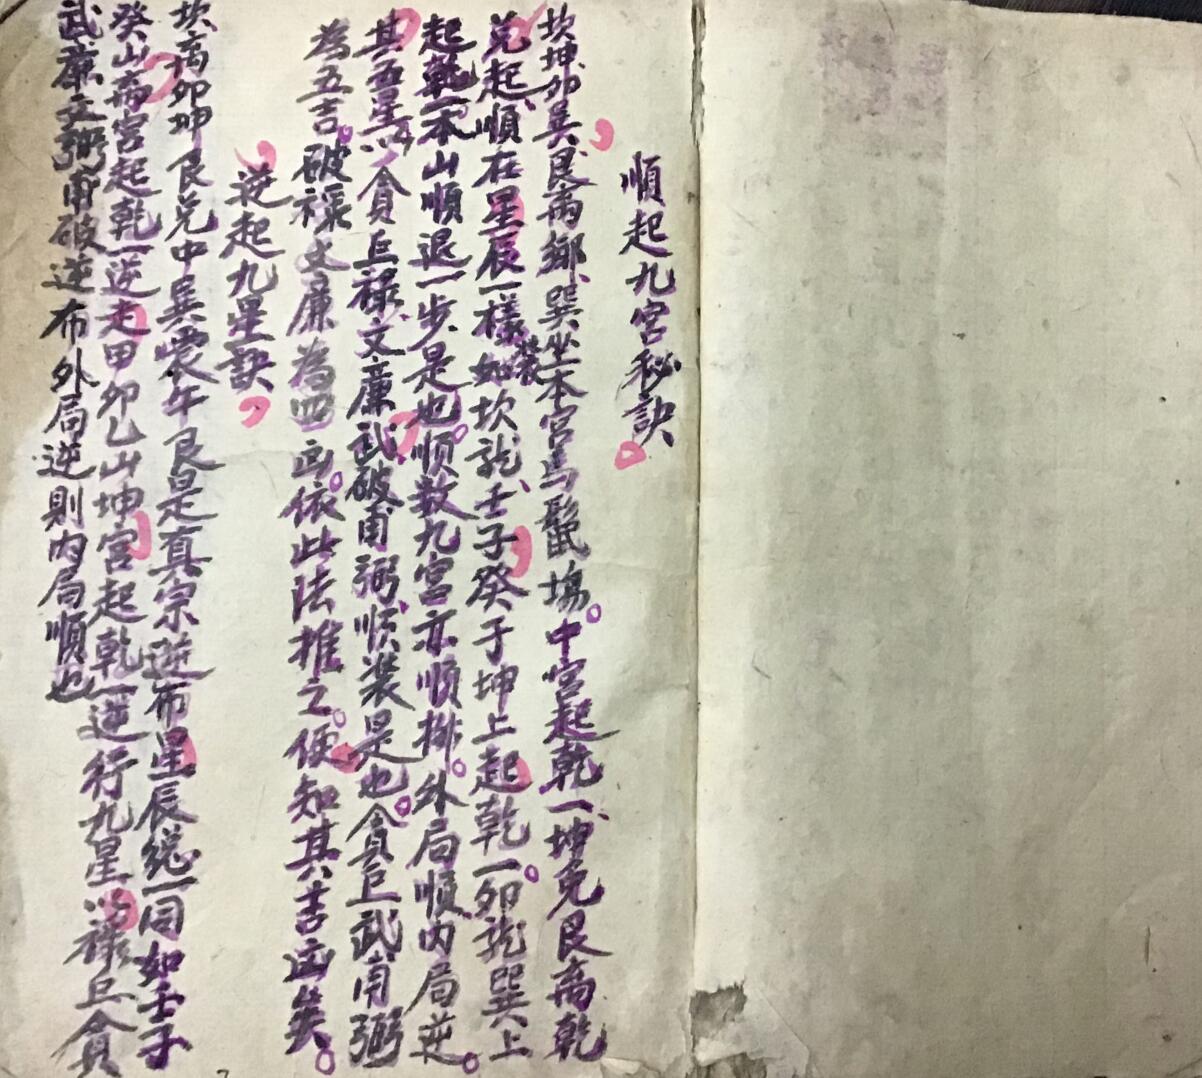 順起九宮秘訣
坎坤卯巽艮离鄉巽坐本宮馬鬛場中宮起乾一坤兌艮离乾
兌起順在星辰一樣裝如坎龍壬子癸于坤上起乾一卯龍巽上
起乾一本山順退一步是也順数九宮亦順排外局順内局逆
其五星以貪巨禄文廉武破甫弼順装是也貪巨武甫弼
為五吉破禄文廉為四凶依此法推之便知其吉凶矣
逆起九星訣
坎离卯坤艮兌中巽震午艮是真宗逆布星辰総一同如壬子
癸山离宮起乾一逆走甲卯乙山坤宮起乾一逆行九星以禄巨貪
武廉文弼甫破逆布外局逆則内局順也